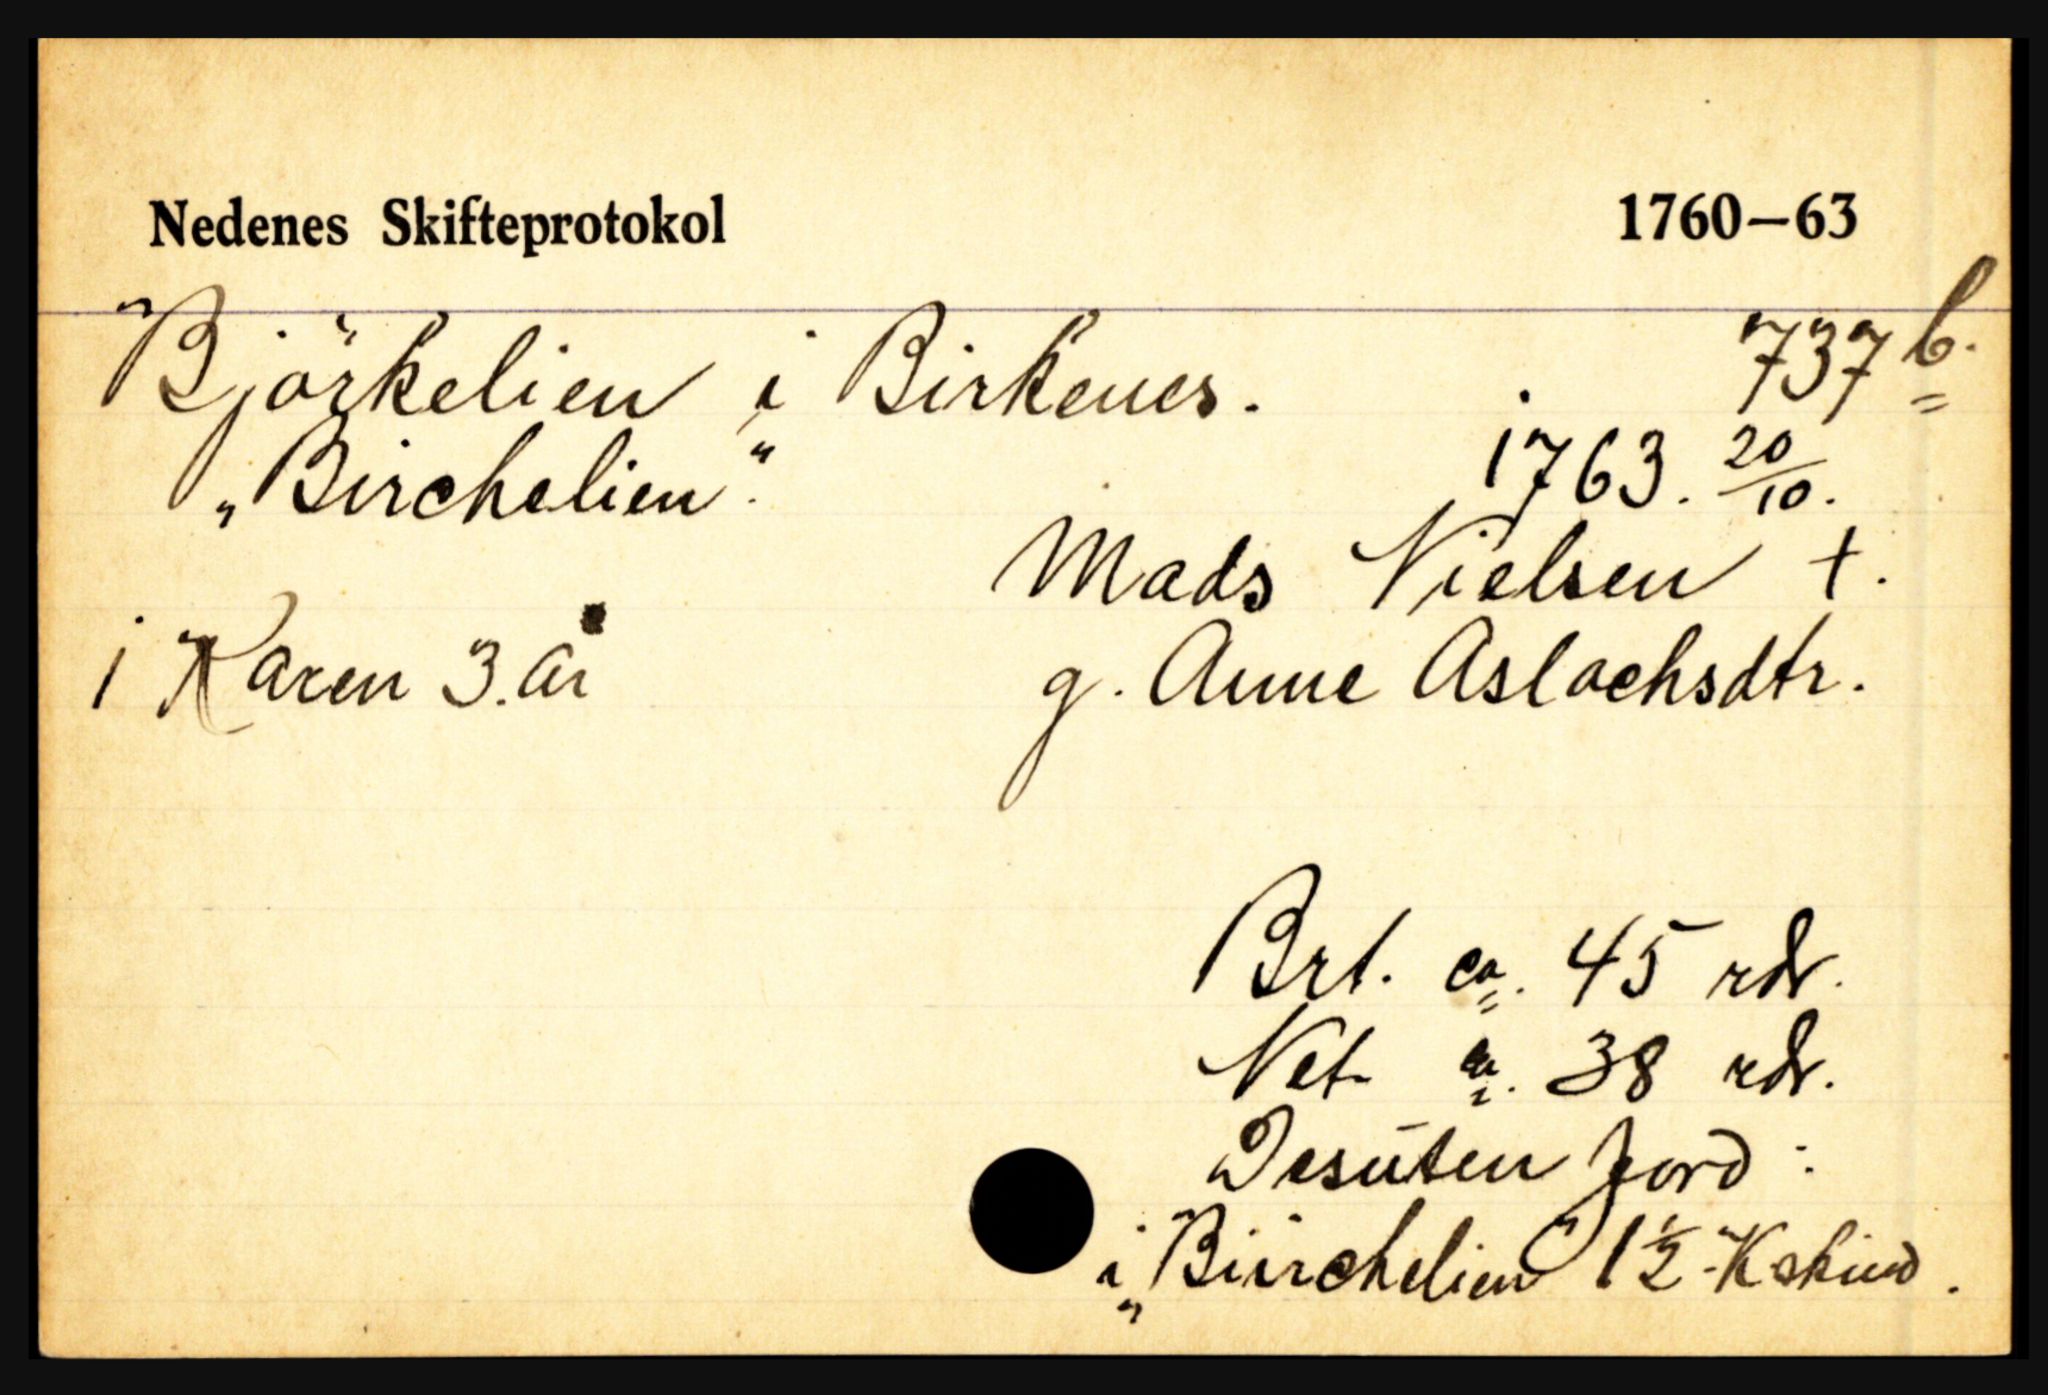 Nedenes Skifteprotokol 1760—63
Björkelien i Birkenes. 737 b.
„Birchelien“. 1763. 20/10.
Mads Nielsen †.
1 Karen 3. år g. Anne Aslachsdtr.
Brt. ca. 45 rdr.
Net ca. 38 rdr.
Desuten jord:
i „Biirchelien“ 1½ Kskind.